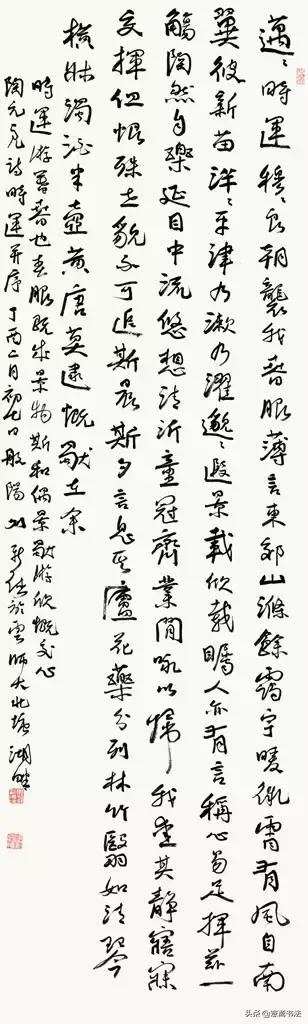 邁〻時運穆〻良朝襲我春服薄言東郊山滌餘靄宇曖微霄有風自南
翼彼新苗洋〻平津乃漱乃濯邈〻遐景載欣載矚人亦有言稱心易足揮茲一
觴陶然自樂延目中流悠想清沂童冠齊業閒詠以歸我愛其靜寤寐
交揮但恨殊世邈不可追斯晨斯夕言息其廬花藥分列林竹翳如清琴
橫牀濁酒半壺黃唐莫逮慨獨在余
時運游暮春也春服既成景物斯和偶景獨游欣慨交心
陶元亮詩時運并序丁丙二月初七日般陽於雲師大北塘湖畔
头条@意嵩书法